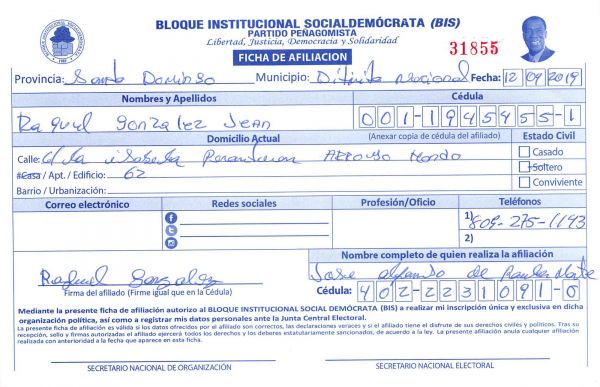 BLOQUE INSTITUCIONAL SOCIALDEMÓCRATA (BIS)
PARTIDO PEÑAGOMISTA
Libertad, Justicia, Democracia y Solidaridad
FICHA DE AFILIACION
31855
Provincia: Santo Domingo Municipio: Distrito Nacional Fecha: 12 09 2019
Nombres y Apellidos Cédula
Raquel Gonzalez Jean 001-1945455-1
Domicilio Actual (Anexar copia de cédula del afiliado) Estado Civil
Calle: C/ la isabela Arroyo Hondo Casado
#Casa / Apt. / Edificio: 62 Soltero
Barrio / Urbanización: Conviviente
Correo electrónico Redes sociales Profesión/Oficio Teléfonos
1) 809-275-1193
2)
Nombre completo de quien realiza la afiliación
Raquel Gonzalez Jose de
Firma del afiliado (Firme igual que en la Cédula) Cédula: 402-2231091-0
Mediante la presente ficha de afiliación autorizo al BLOQUE INSTITUCIONAL SOCIAL DEMÓCRATA (BIS) a realizar mi inscripción única y exclusiva en dicha
organización política, así como a registrar mis datos personales ante la Junta Central Electoral.
La presente ficha de afiliación es válida si los datos ofrecidos por el afiliado son correctos, las declaraciones veraces y si el afiliado tiene el disfrute de sus derechos civiles y políticos. Tras su
recepción, sello y firmas autorizadas el afiliado ejercerá todos los derechos y los deberes estatutariamente sancionados, de acuerdo a la ley. La presente afiliación anula cualquier afiliación
realizada con anterioridad a la fecha que aparece en esta ficha.
SECRETARIO NACIONAL DE ORGANIZACIÓN SECRETARIO NACIONAL ELECTORAL